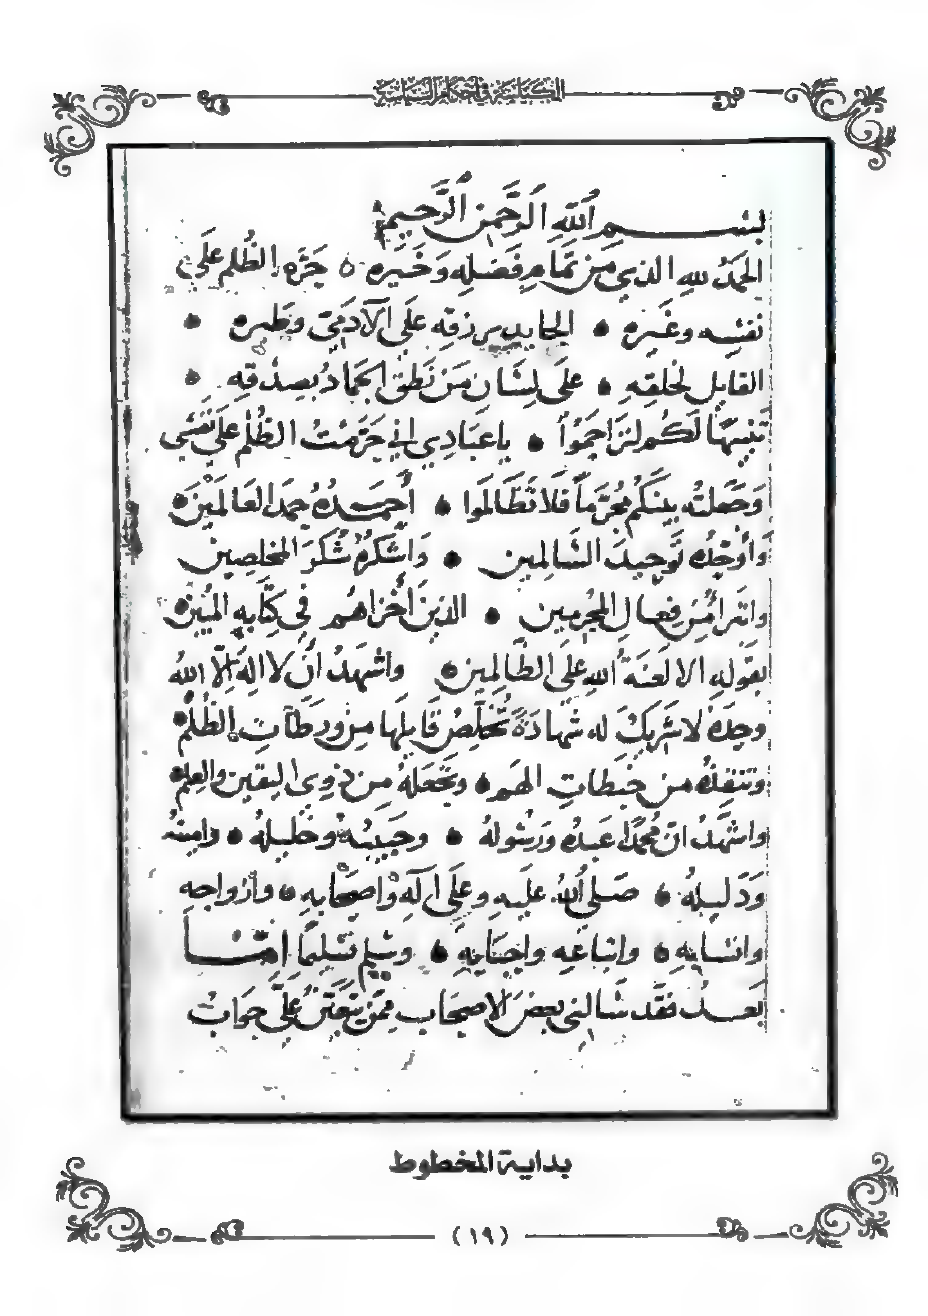 بسم الله الرحمن الرحيم
الحمد لله الذي من تمام فضله وخيره ۞ حَرَّم الظُلم عَلَى
نفسه وغيره ۞ الجايد برزقه عَلَى الآدَميّ وطيره ۞
القايل لخلقه ۞ على لسَان مَن نَطق الجمادُ بصدقه ۞
تنبيهًا لكم لتراحمُوا ۞ يا عبَادي اني حَرَّمتُ الظُلم عَلى نَفسي
وَجَعلته بينكم مُحرَّماً فلا تَظَالمَوا ۞ أحمَدُهُ حمدَ العَالمين ۞
وَأوَحِّدُه تَوحيدَ السَّالمين ۞ وَاشكرُهُ شُكرَ المخلصِين
واتبرأ مِن فِعال المجرمين ۞ الذينَ أخزاهُم في كتَابِه المُبين ۞
بقوله الا لَعنَة اللهِ عَلى الظَالمين ۞ واشهَدُ انْ لا اله الّا الله
وحدَهُ لا شَريكَ له شهادَةً تخَلِّصُ قايلَها من ورطَات الظُلم ۞
وتنقذه من خبطات الهمم ۞ وتَجعَلهُ من ذوي اليقين والعِلم
واشهَدُ ان مُحمّدًا عَبدهُ ورسُولهُ ۞ وحبَيبُه وخليلهُ ۞ وامينهُ
ودَليلهُ ۞ صَلى اللهُ عليه وعلى آله واصحَابه ۞ وازواجه
وانسابه ۞ واتباعه واحبابه ۞ وسَلم تسليمًا امَّا
بَعدُ فقد سَالني بعضَ الاصحَاب ممَّن يتَعَيَّن عليَّ جوابُ
بداية المخطوط
(١٩)